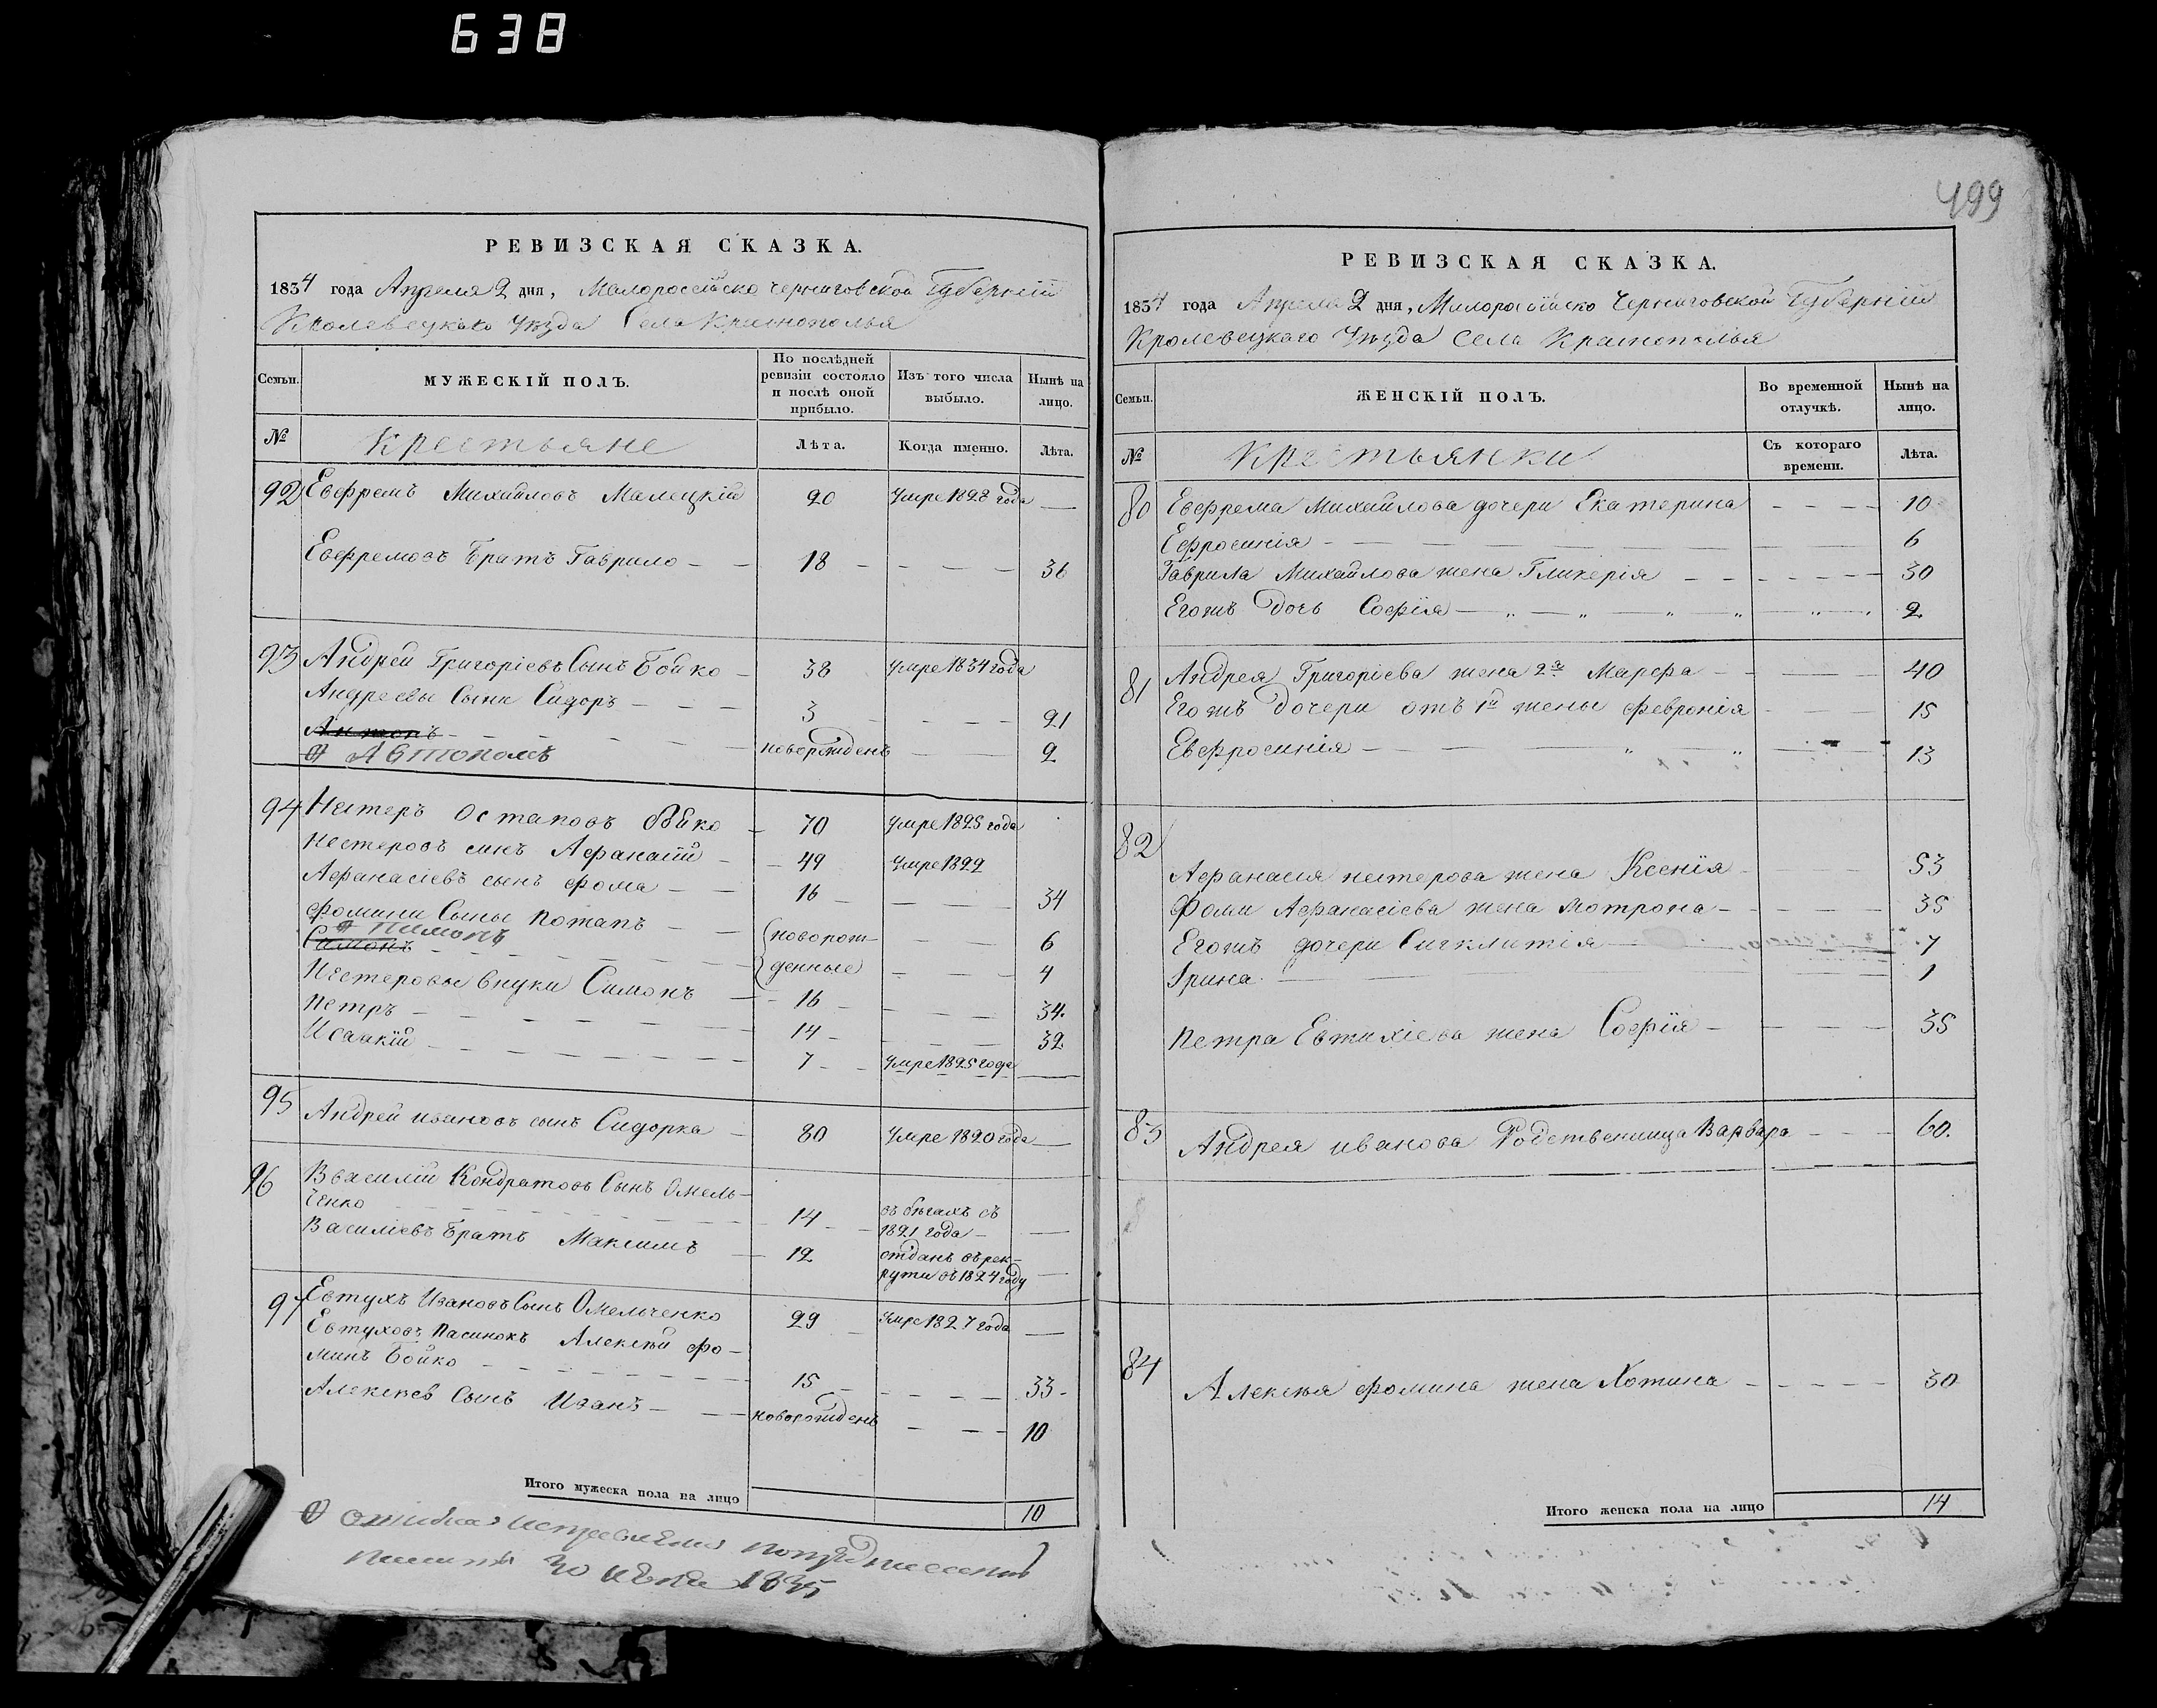 638
РЕВИЗСКАЯ СКАЗКА.
1834 года Апреля 2 дня, Малороссійско Черниговской Губерніи
Кролевецкаго Уѣзда Села Краснополья
Семьи.
МУЖЕСКІЙ ПОЛЪ.
По послѣдней ревизіи состояло и послѣ оной прибыло.
Изъ того числа выбыло.
Нынѣ на лицо.
№ Крестьяне Лѣта. Когда именно. Лѣта.
92 Евфремъ Михайловъ Малецкій 20 умре 1828 года —
Евфремовъ Братъ Гаврило — — 18 — — — — 36
93 Андрей Григоріевъ Сынъ Бойко — 38 умре 1834 года
Андреевы Сыни Сидоръ — — — 3 — — — — 21
Антонъ — — — — новорожденъ — — 2
Автономъ
94 Нестеръ Остаповъ Бойко — 70 умре 1825 года
Нестеровъ синъ Афанасій — — 49 умре 1822
Афанасіевъ сынъ Фома — — 16 — — — — 34
Фомини Сыны Потапъ — — (новорож— — — — 6
Пимонъ
Самонъ — — — — — — (денные — — — 4
Нестеровы внуки Симонъ — — 16 — — — — 34.
Петръ — — — — — — 14 — — — — 32
Исаакій — — — — — — 7 — — умре 1825 года —
95 Андрей ивановъ сынъ Сидорка — 80 умре 1820 года —
96 Василій Кондратовъ Сынъ Омель—
ченко — — — — — — 14 — — въ бѣгахъ съ 1821 года — —
Василіевъ Братъ Максимъ — 12 отданъ въ рек— рути въ 1824 году —
97 Евтухъ Ивановъ Сынъ Омельченко 29 умре 1827 года —
Евтуховъ Пасинокъ Алексѣй Фо—
минъ Бойко — — — — — — 15 — — — — 33 —
Алексѣев Сынъ Иванъ — — — новорожденъ — — — 10
Итого мужеска пола на лицо 10
ошибка исправлена
30 1835
499
РЕВИЗСКАЯ СКАЗКА.
1834 года Апреля 2 дня, Малоросійско Черниговской Губерніи
Кролевецкаго Уѣзда Села Краснополья
Семьи.
ЖЕНСКІЙ ПОЛЪ.
Во временной отлучкѣ.
Нынѣ на лицо.
№ Крестьянки Съ котораго времени. Лѣта.
80 Евфрема Михайлова дочери Екатерина — — — — 10
Ефросинія — — — — — — — 6
Гаврила Михайлова жена Гликерія — — — — — — 30
Егожъ дочь Софія — „ — „ — „ „ — „ — „ 2
81 Андрея Григоріева жена 2я Марфа — — — — 40
Егожъ дочери отъ 1й жены Февронія — — — 15
Евфросинія — — — „ „ — — — 13
82
Афанасія нестерова жена Ксенія — — — 53
Фоми Афанасіева жена Мотрона — — — — 35
Егожъ дочери Сигклитія — — — 7
Ірина — — — — 1
Петра Евтихіева жена Софія — — — — 35
83 Андрея иванова Родственица Варвара — — — 60.
84 Алексѣя Фомина жена Хотина — — — — — 30
Итого женска пола на лицо 14